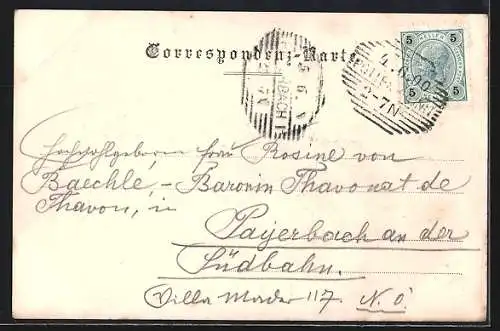 Correspondenz-Karte
5 HELLER 5
5 5
4.6.00
2-7N
5 6
Hochwohlgeboren Frau Rosine von
Baechlé, - Baronin Thavonat de
Thavon, in
Payerbach an der
Südbahn.
Villa Mader 117. N.Ö.